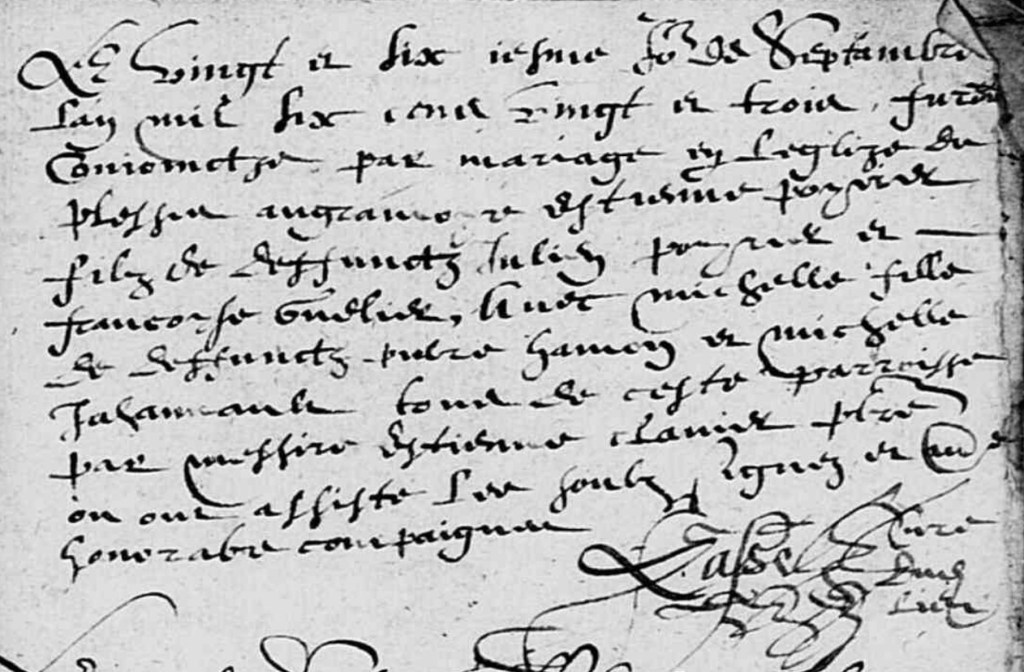 Le vingt et six iesme Jor de Septambre
Lan mil six cens vingt et trois furent
Conioincts par mariage en leglize du
plessis angram re estienne poyrier
filz de deffunctz Julien poyrier et
francoyse Guelier, Avec michelle fille
de deffunctz pierre hamon et michelle
tous de ceste parroisse
par messire estienne clavier ptre
ou ont assisté les soubz signez et aue
honorable compaignee